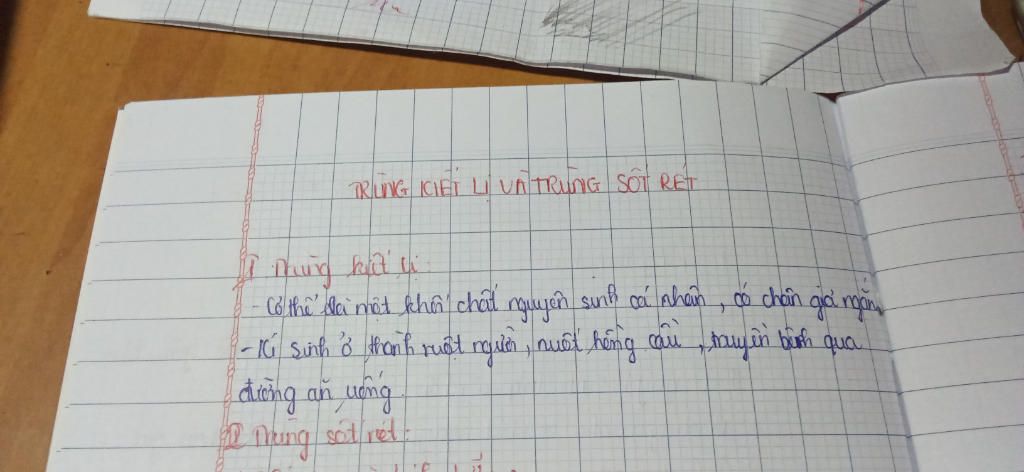 TRÙNG KIẾT LỊ VÀ TRÙNG SỐT RÉT
I Trùng kiết lị:
- Cơ thể là một khối chất nguyên sinh có nhân, có chân giả ngắn
- Kí sinh ở thành ruột người, nuốt hồng cầu, truyền bệnh qua
đường ăn uống
II Trùng sốt rét: